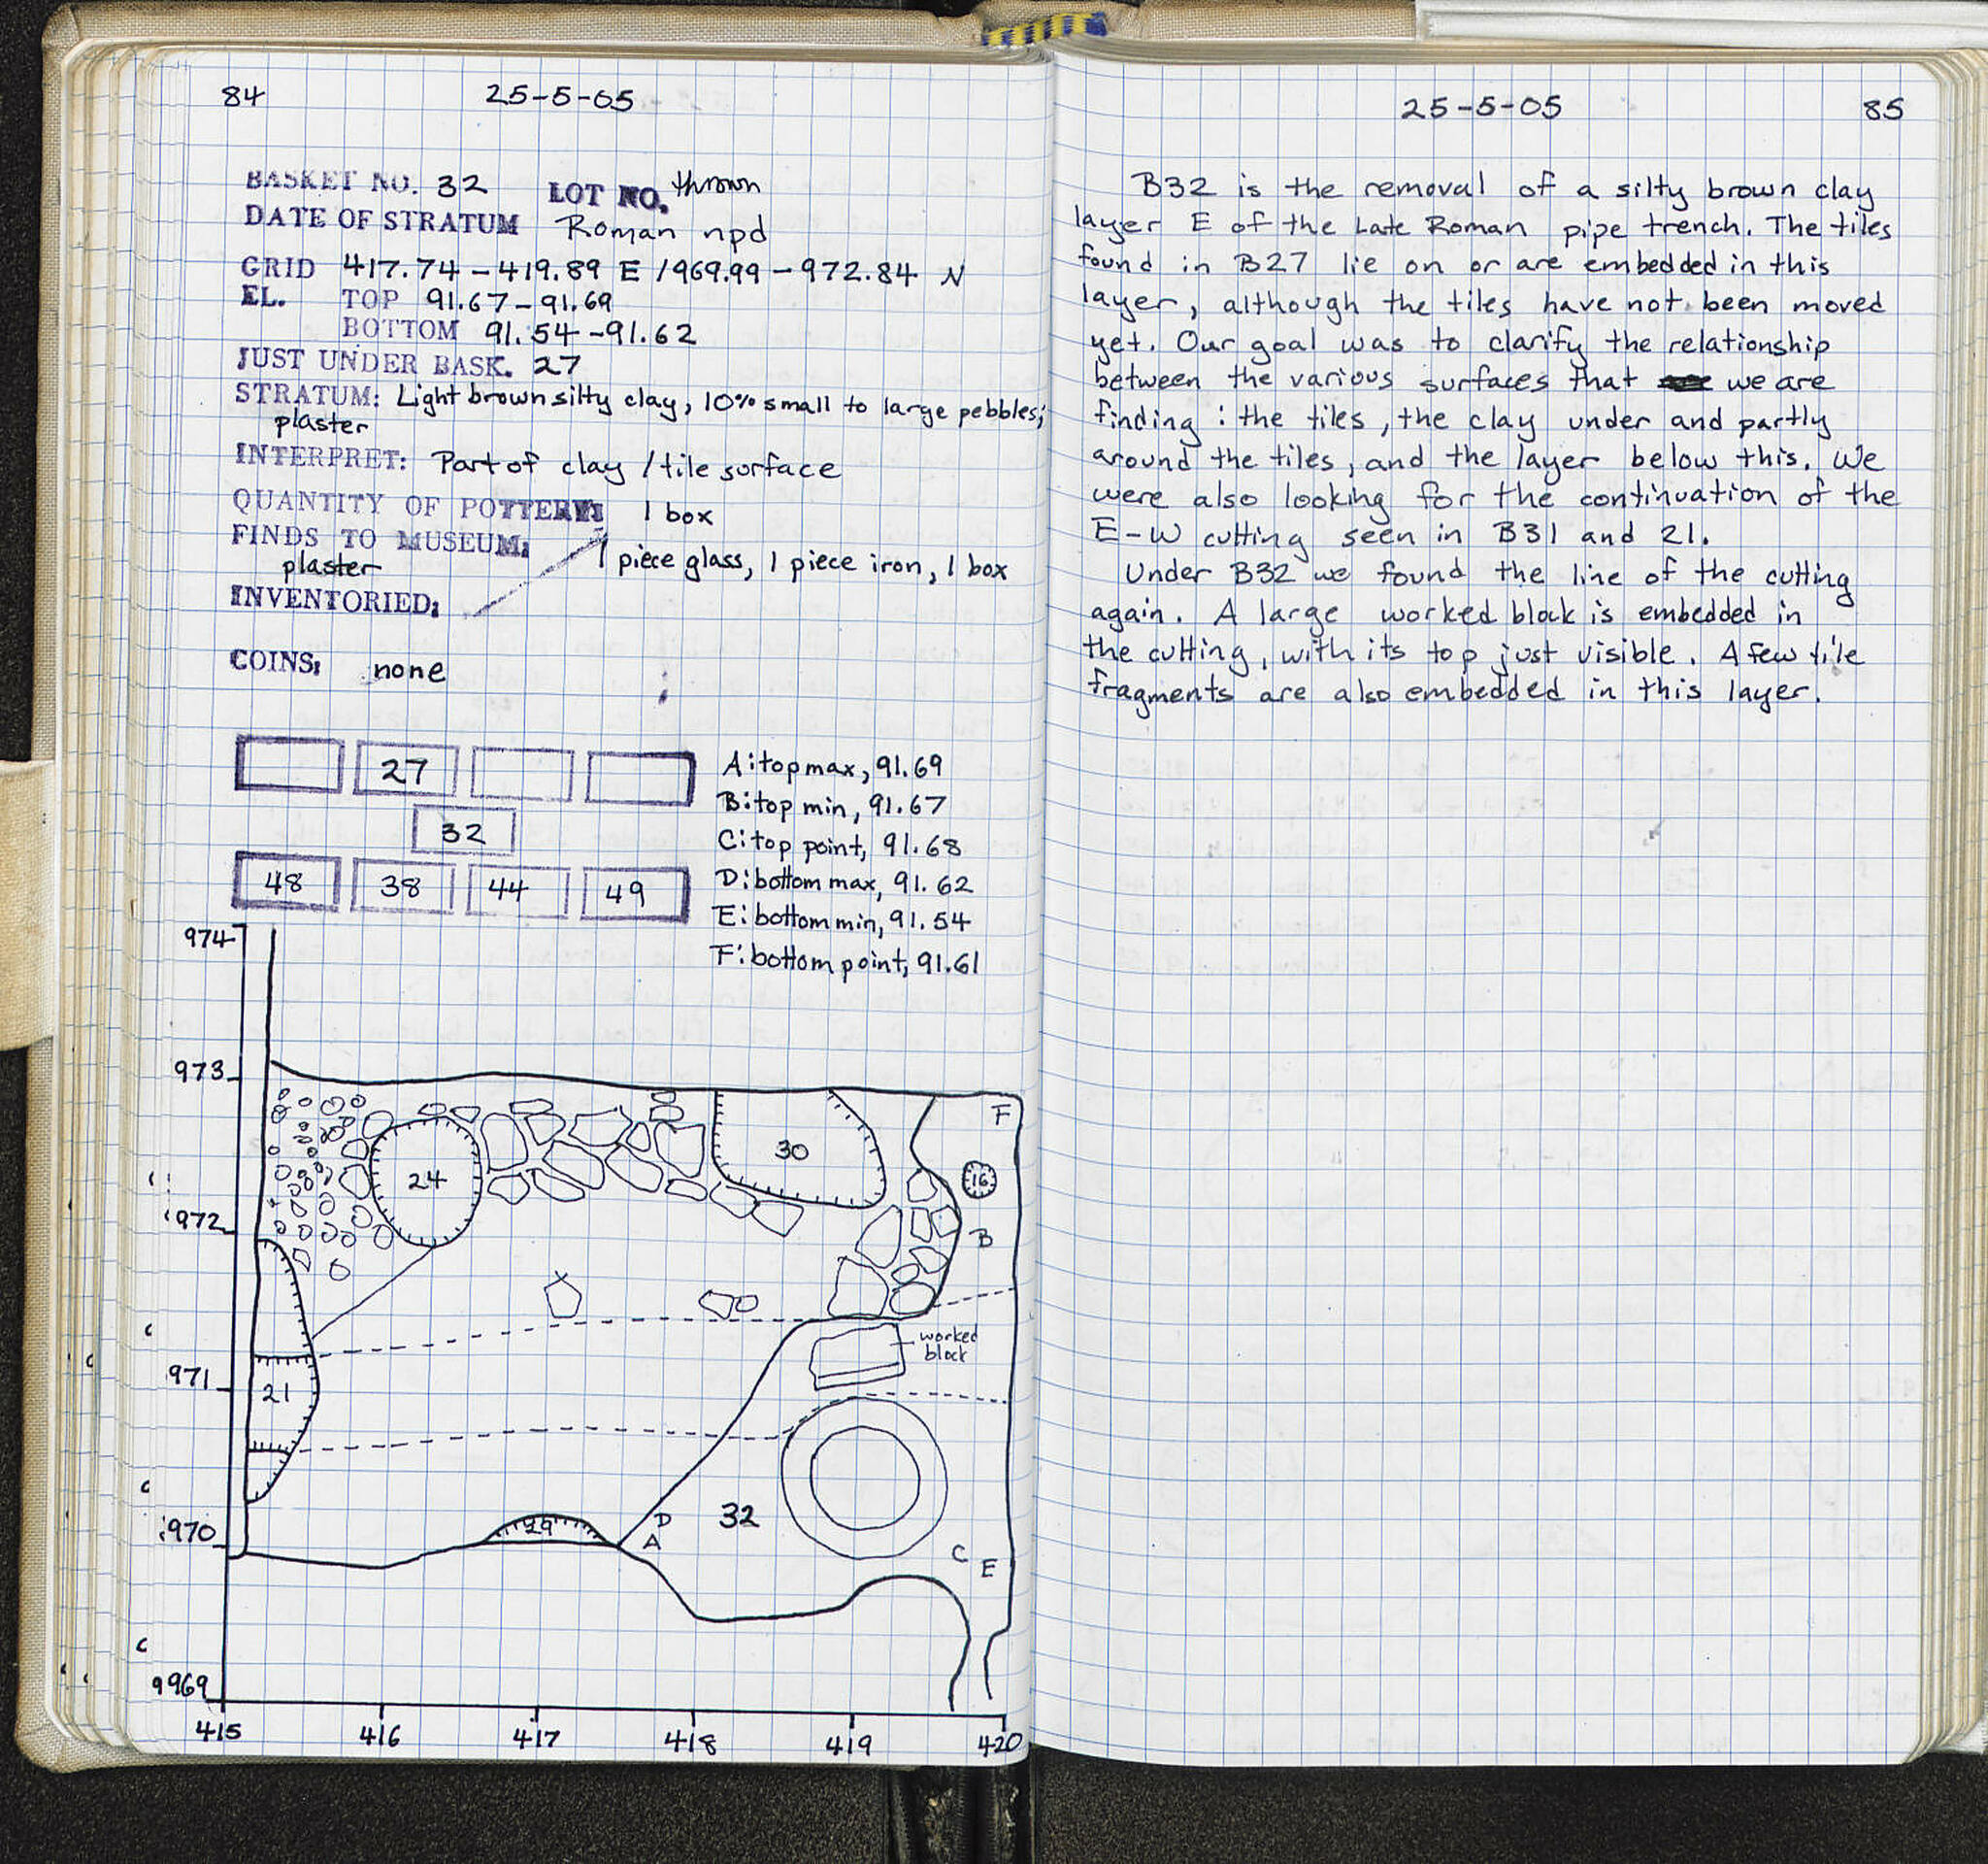 84
25-5-05
BASKET NO. 32 LOT NO. thrown
DATE OF STRATUM Roman npd
GRID 417.74-419.89 E / 969.99-972.84 N
EL. TOP 91.67-91.69
BOTTOM 91.54-91.62
JUST UNDER BASK. 27
STRATUM: Light brown silty clay, 10% small to large pebbles;
plaster
INTERPRET: Part of clay / tile surface
QUANTITY OF POTTERY: 1 box
FINDS TO MUSEUM: 1 piece glass, 1 piece iron, 1 box
plaster
INVENTORIED:
COINS: none
27
32
48 38 44 49
A: top max, 91.69
B: top min, 91.67
C: top point, 91.68
D: bottom max, 91.62
E: bottom min, 91.54
F: bottom point, 91.61
974
973
972
971
970
969
415 416 417 418 419 420
24
30
F
16
B
worked
block
21
29
D
A
32
C
E
25-5-05
85
B32 is the removal of a silty brown clay
layer E of the Late Roman pipe trench. The tiles
found in B27 lie on or are embedded in this
layer, although the tiles have not been moved
yet. Our goal was to clarify the relationship
between the various surfaces that we are
finding: the tiles, the clay under and partly
around the tiles, and the layer below this. We
were also looking for the continuation of the
E-W cutting seen in B31 and 21.
Under B32 we found the line of the cutting
again. A large worked block is embedded in
the cutting, with its top just visible. A few tile
fragments are also embedded in this layer.